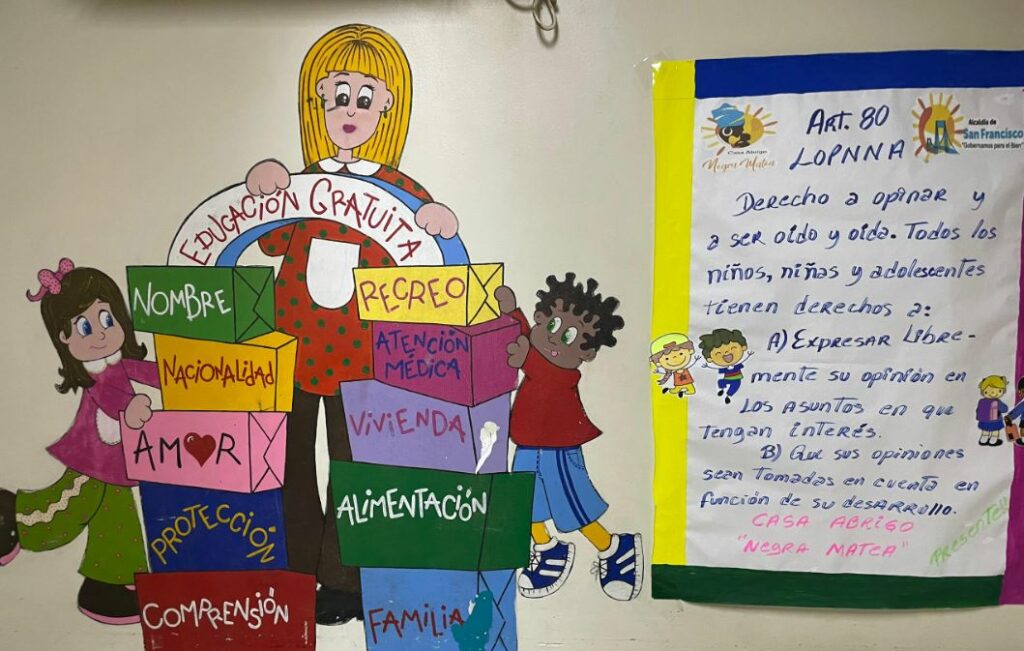 EDUCACIÓN GRATUITA
NOMBRE
NACIONALIDAD
AMOR
PROTECCIÓN
COMPRENSIÓN
RECREO
ATENCIÓN
MÉDICA
VIVIENDA
ALIMENTACIÓN
FAMILIA
Casa Abrigo
Negra Matea
ART. 80
LOPNNA
Alcaldía de
San Francisco
"Gobernamos para el Bien"
Derecho a opinar y
a ser oído y oída. Todos los
niños, niñas y adolescentes
tienen derechos a:
A) Expresar Libre-
mente su opinión en
Los asuntos en que
tengan interés.
B) Que sus opiniones
sean tomadas en cuenta en
función de su desarrollo.
CASA ABRIGO
"NEGRA MATEA"